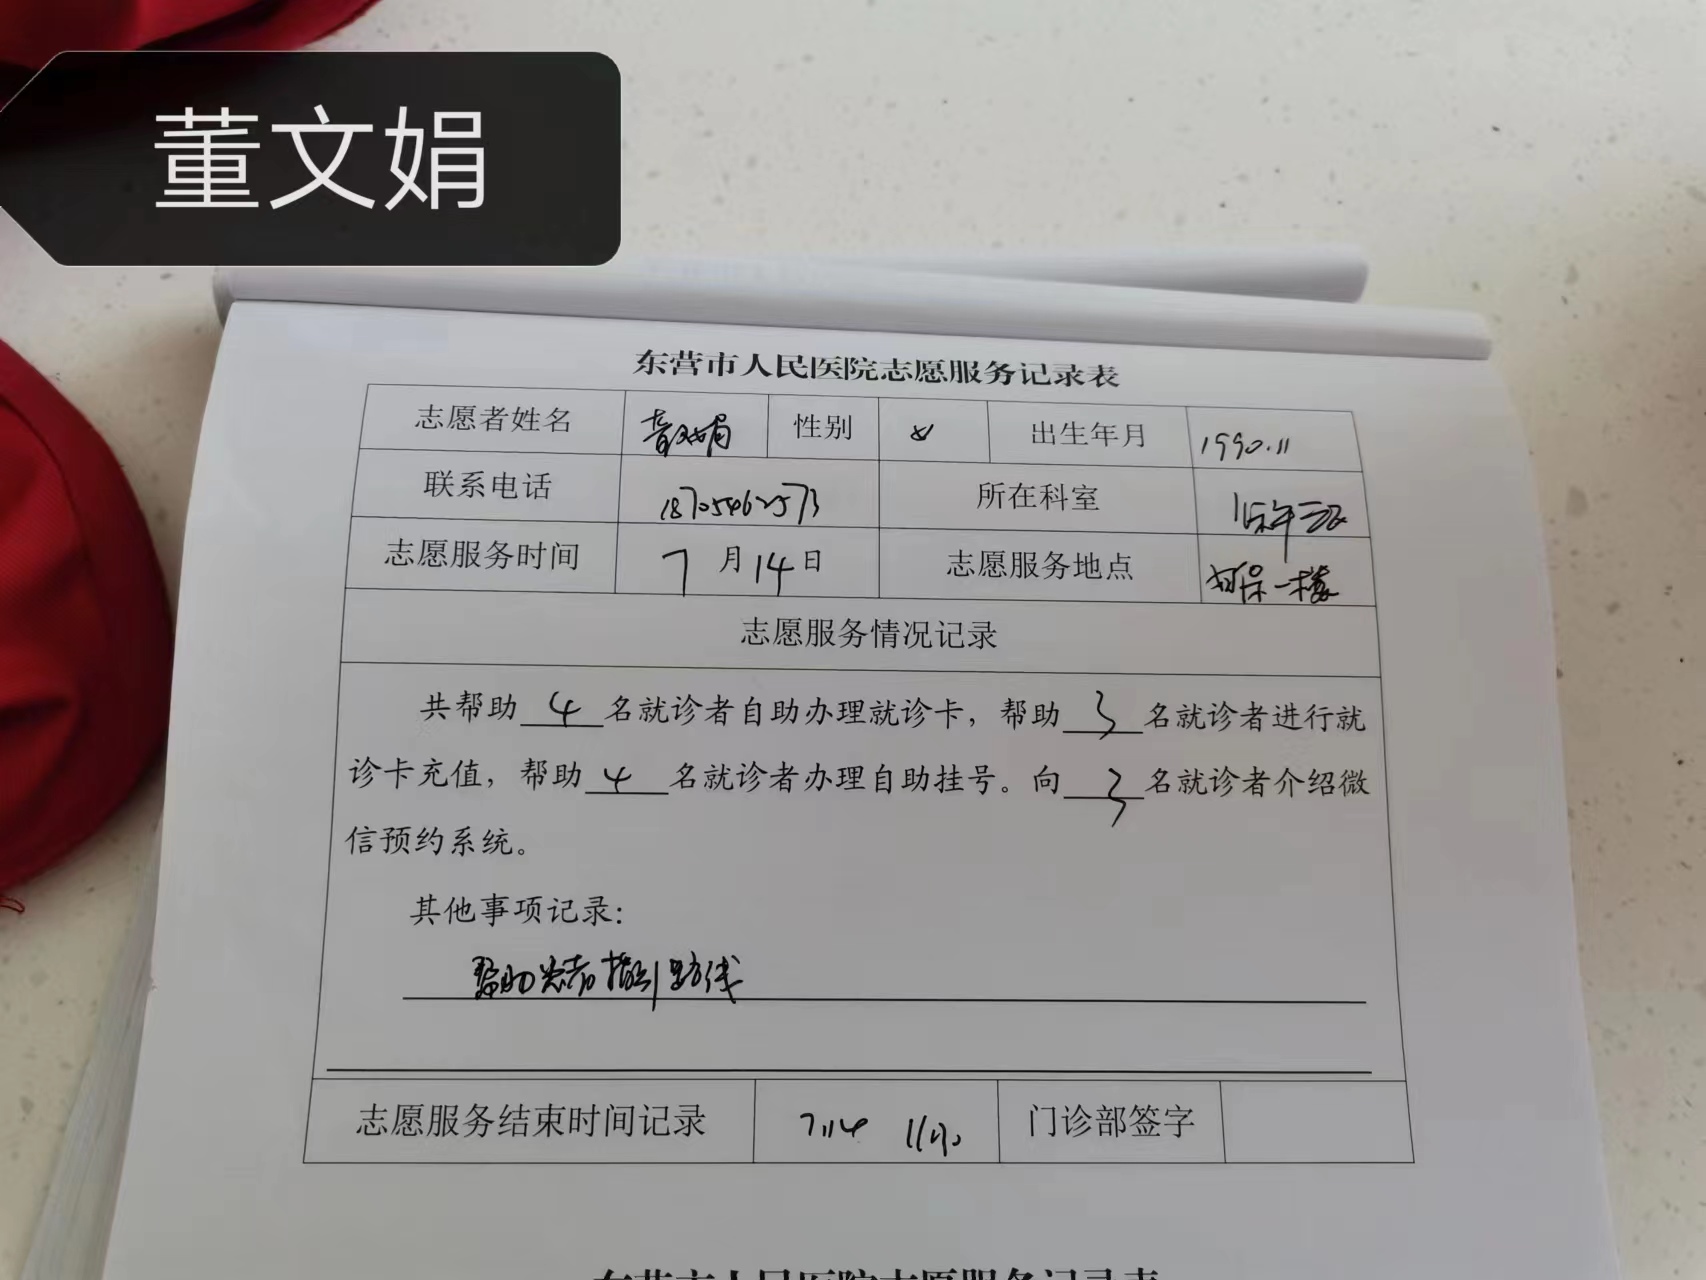 董文娟
东营市人民医院志愿服务记录表
志愿者姓名 董文娟 性别 女 出生年月 1990.11
联系电话 18705462573 所在科室
志愿服务时间 7月14日 志愿服务地点 妇保一楼
志愿服务情况记录
共帮助 4 名就诊者自助办理就诊卡，帮助 3 名就诊者进行就
诊卡充值，帮助 4 名就诊者办理自助挂号。向 3 名就诊者介绍微
信预约系统。
其他事项记录：
帮助患者指引路线
志愿服务结束时间记录 7.14 门诊部签字
东营市人民医院志愿服务记录表